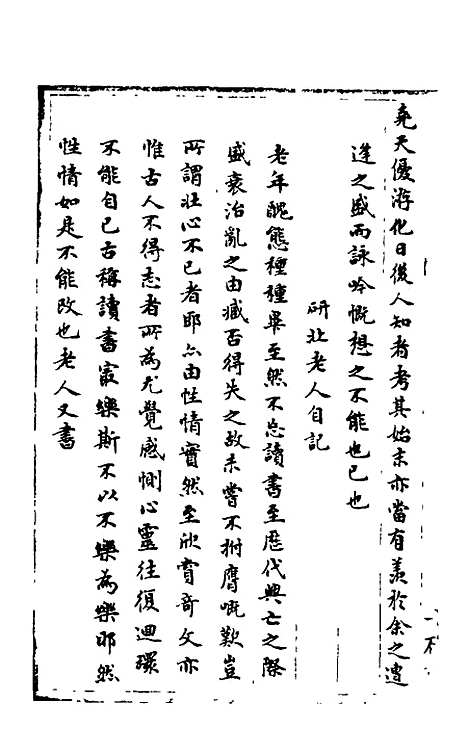 堯天優游化日後人知者考其始末亦當有羨於余之遭
逢之盛而詠吟慨想之不能也已也
研北老人自記
老年醜態種種畢至然不忘讀書至歷代興亡之際
盛衰治亂之由臧否得失之故未嘗不拊膺嘅歎豈
所謂壯心不已者耶亦由性情實然至欣賞奇文亦
惟古人不得志者所為尤覺感惻心靈往復迴環
不能自已古稱讀書最樂斯不以不樂為樂耶然
性情如是不能改也老人又書